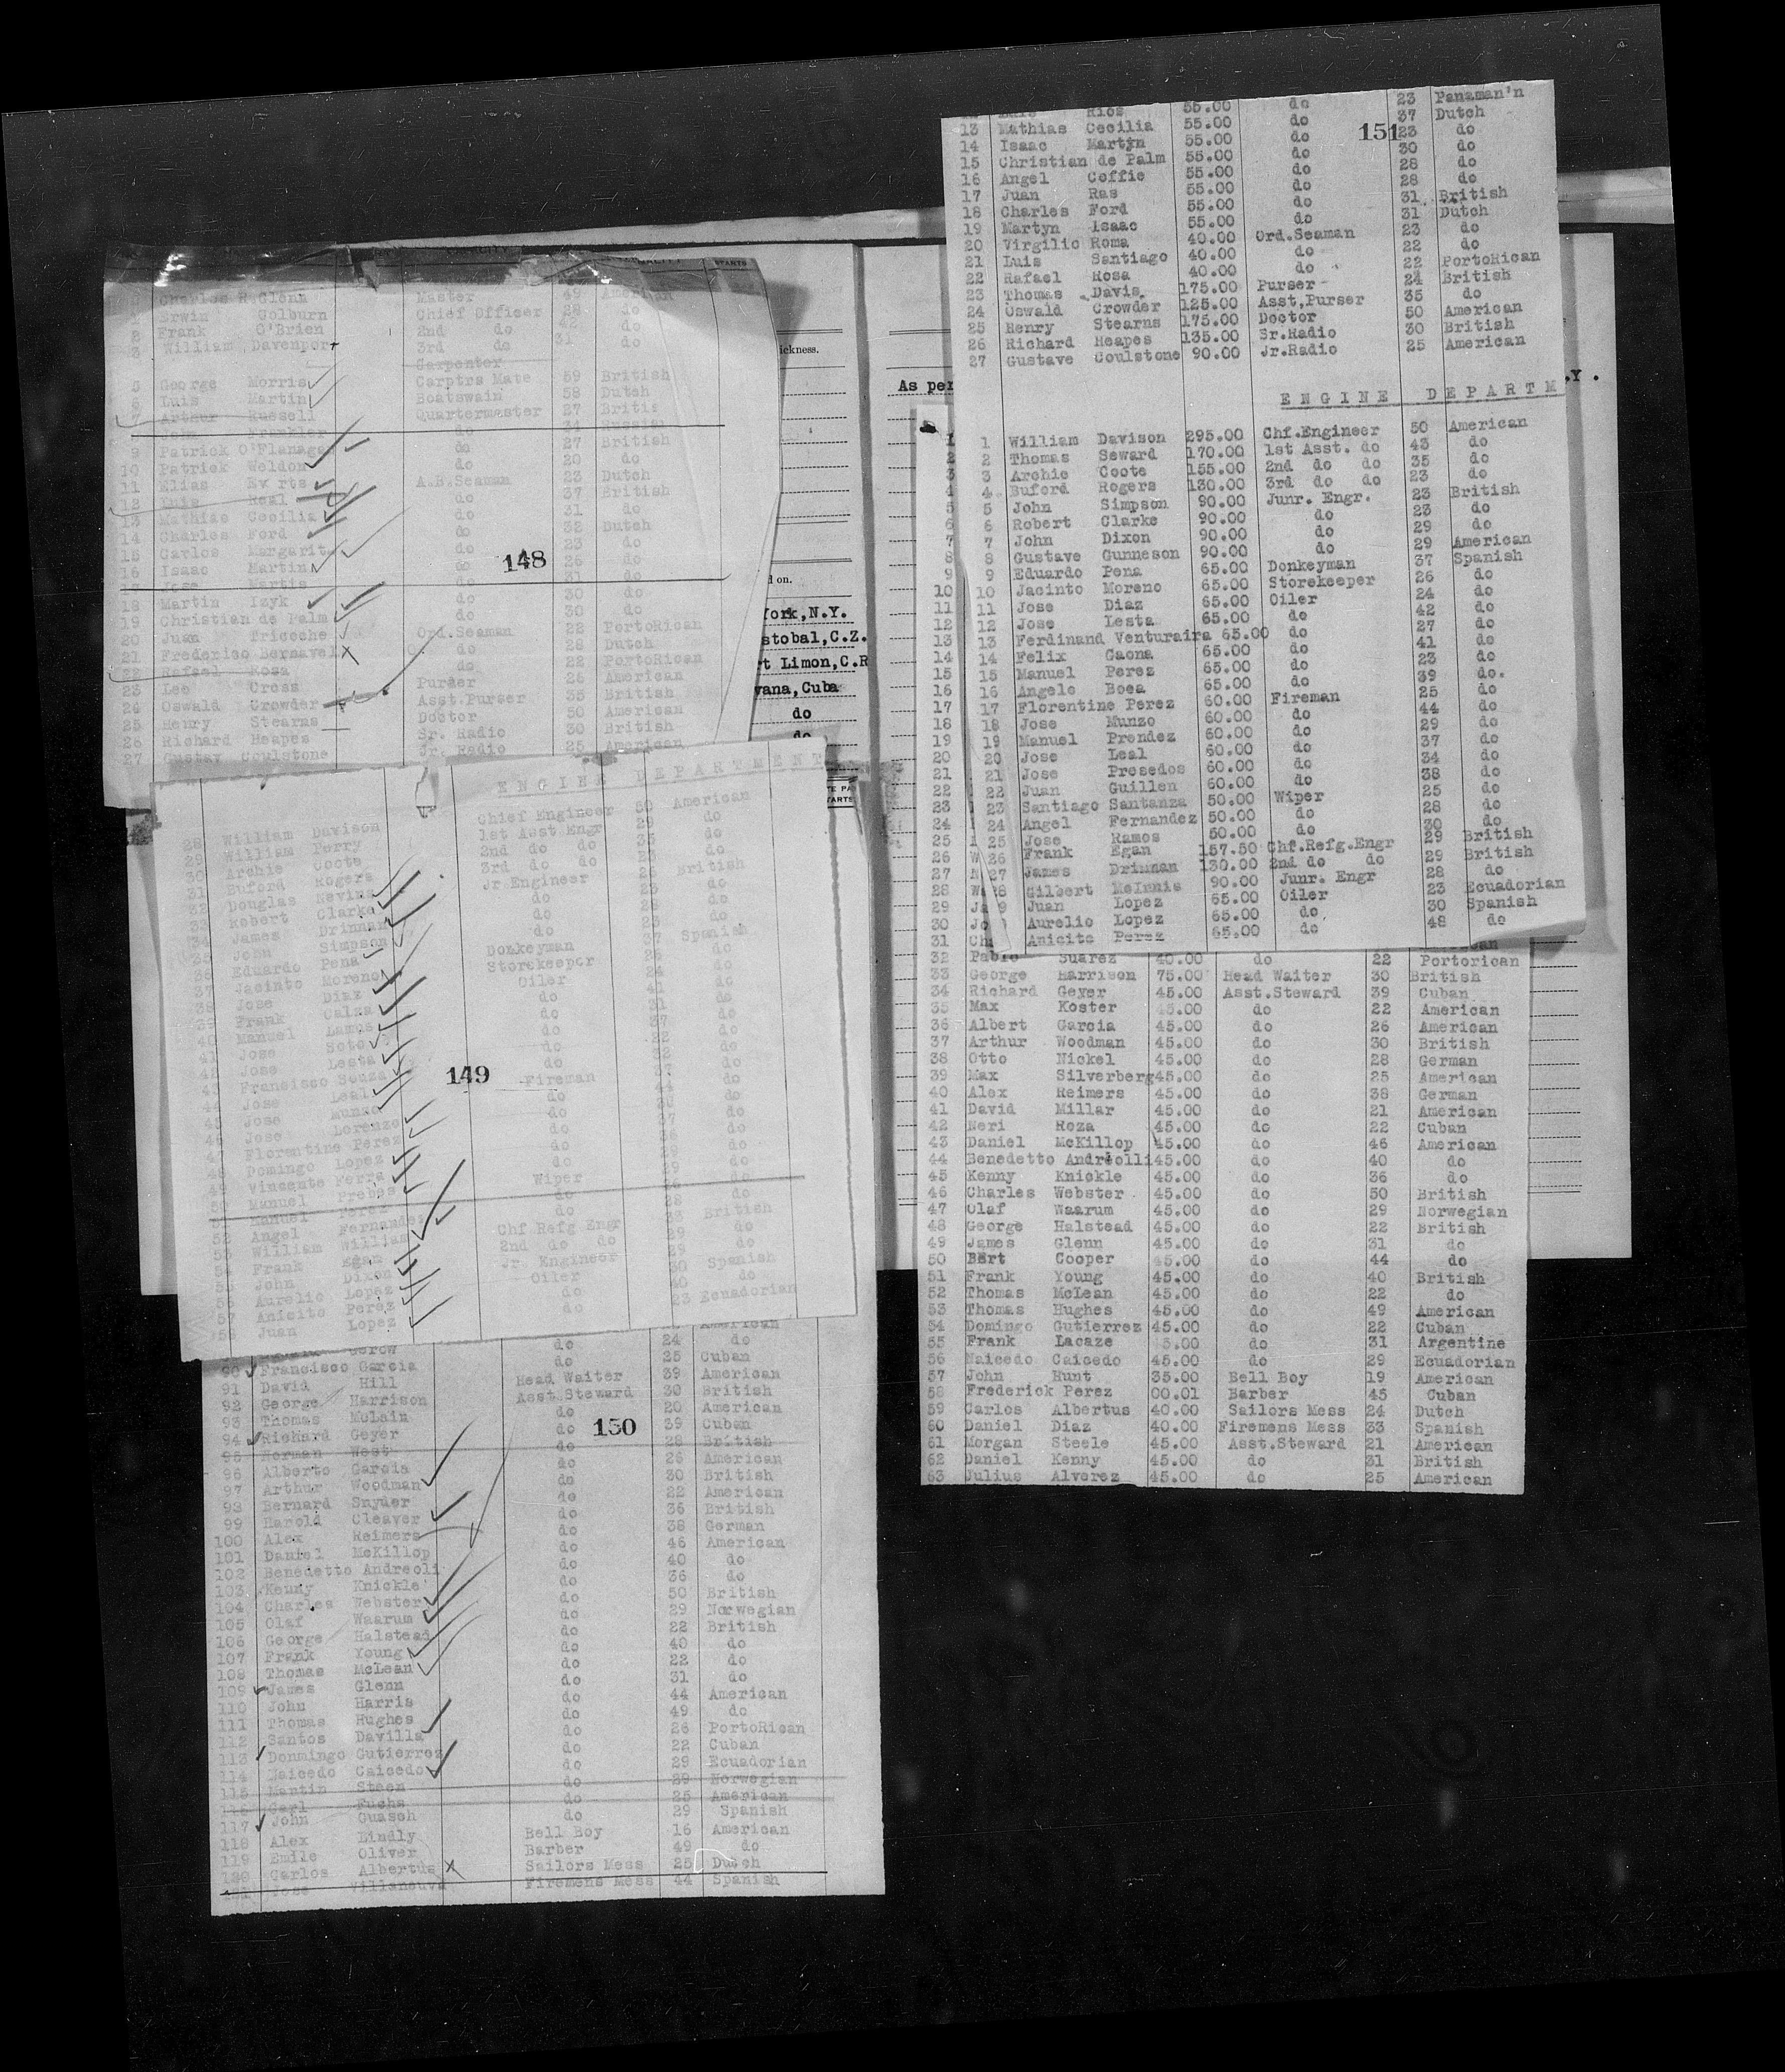 148
Charles R Glenn Master 49 American
1 Erwin Colburn Chief Officer 28 do
2 Frank O'Brien 2nd do 42 do
3 William Davenport 3rd do 31 do
Carpenter
5 George Morris Carptrs Mate 59 British
6 Luis Martin Boatswain 58 Dutch
7 Arthur Russell Quartermaster 27 Britis
do 34 Russian
9 Patrick O'Flanagan do 27 British
10 Patrick Weldon do 20 do
11 Elias Ev rts A.B.Seaman 23 Dutch
12 Luis Real do 37 British
13 Mathias Cecilia do 31 do
14 Charles Ford do 32 Dutch
15 Carlos Margarit do 23 do
16 Isaac Martin do 26 do
Jose Martis do 31 do
18 Martin Izyk do 30 do
19 Christian de Palm do 30 do
20 Juan Tricoche Ord.Seaman 22 PortoRican
21 Frederico Bernavel do 28 Dutch
22 Rafael Rosa do 22 PortoRican
23 Leo Cross Purser 26 American
24 Oswald Crowder Asst.Purser 35 British
25 Henry Stearns Doctor 50 American
26 Richard Heapes Sr. Radio 30 British
27 Gustav Coulstone Jr. Radio 25 American
ickness.
d on.
York,N.Y.
stobal,C.Z.
rt Limon,C.R
vana,Cuba
do
do
ENGINE DEPARTMENT
149
28 William Davison Chief Engineer 50 American
29 William Perry 1st Asst Engr 29 do
30 Archie Coote 2nd do do 35 do
31 Buford Rogers 3rd do do 23 do
32 Douglas Nevins Jr Engineer 26 British
33 Robert Clarke do 23 do
34 James Drinnan do 28 do
35 John Simpson do 23 do
36 Eduardo Pena Donkeyman 37 Spanish
37 Jacinto Moreno Storekeeper 26 do
38 Jose Diaz Oiler 24 do
39 Frank Calza do 41 do
40 Manuel Lamas do 31 do
41 Jose Soto do 37 do
42 Jose Lesta do 22 do
43 Francisco Souza do 32 do
44 Jose Leal Fireman 37 do
45 Jose Munzo do 44 do
46 Jose Lorenzo do do
47 Florentine Perez do do
48 Domingo Lopez do do
49 Vincente Ferra do 29 do
50 Manuel Prebes Wiper 29 do
51 Manuel Perez do do
52 Angel Fernandez do 28 do
53 William Willias Chf Refg Engr 38 British
54 Frank Egan 2nd do do 29 do
55 John Dixon Jr. Engineer 29 do
56 Aurelio Lopez Oiler 30 Spanish
57 Anicito Perez do 40 do
58 Juan Lopez do 23 Ecuadorian
150
American
Gerow do 24 do
90 Francisco Garcia do 25 Cuban
91 David Hill Head Waiter 39 American
92 George Harrison Asst.Steward 30 British
93 Thomas McLain do 20 American
94 Richard Geyer do 39 Cuban
95 Herman West do 28 British
96 Alberto Garcia do 26 American
97 Arthur Woodman do 30 British
98 Bernard Snyder do 22 American
99 Harold Cleaver do 36 British
100 Alex Reimers do 38 German
101 Daniel McKillop do 46 American
102 Benedetto Andreoli do 40 do
103 Kenny Knickle do 36 do
104 Charles Webster do 50 British
105 Olaf Waarum do 29 Norwegian
106 George Halstead do 22 British
107 Frank Young do 40 do
108 Thomas McLean do 22 do
109 James Glenn do 31 do
110 John Harris do 44 American
111 Thomas Hughes do 49 do
112 Santos Davilla do 26 PortoRican
113 Donmingo Gutierrez do 22 Cuban
114 Naicedo Caicedo do 29 Ecuadorian
115 Martin Steen do 29 Norwegian
116 Carl Fuchs do 25 American
117 John Guasch do 29 Spanish
118 Alex Lindly Bell Boy 16 American
119 Emile Oliver Barber 49 do
120 Carlos Albertus Sailors Mess 25 Dutch
121 Jose Villanueva Firemens Mess 44 Spanish
151
Rios 55.00 do 23 Panaman'n
13 Mathias Cecilia 55.00 do 37 Dutch
14 Isaac Martyn 55.00 do 23 do
15 Christian de Palm 55.00 do 30 do
16 Angel Coffie 55.00 do 28 do
17 Juan Ras 55.00 do 28 do
18 Charles Ford 55.00 do 31 British
19 Martyn Isaac 55.00 do 31 Dutch
20 Virgilio Roma 40.00 Ord.Seaman 23 do
21 Luis Santiago 40.00 do 22 do
22 Rafael Rosa 40.00 do 22 PortoRican
23 Thomas Davis 175.00 Purser 24 British
24 Oswald Crowder 125.00 Asst,Purser 35 do
25 Henry Stearns 175.00 Doctor 50 American
26 Richard Heapes 135.00 Sr.Radio 30 British
27 Gustave Coulstone 90.00 Jr.Radio 25 American
As per
.Y.
ENGINE DEPARTM
1 1 William Davison 295.00 Chf.Engineer 50 American
2 2 Thomas Seward 170.00 1st Asst. do 43 do
3 3 Archie Coote 155.00 2nd do do 35 do
4 4 Buford Rogers 130.00 3rd do do 23 do
5 5 John Simpson 90.00 Junr. Engr. 23 British
6 6 Robert Clarke 90.00 do 23 do
7 7 John Dixon 90.00 do 29 do
8 8 Gustave Gunneson 90.00 do 29 American
9 9 Eduardo Pena 65.00 Donkeyman 37 Spanish
10 10 Jacinto Moreno 65.00 Storekeeper 26 do
11 11 Jose Diaz 65.00 Oiler 24 do
12 12 Jose Lesta 65.00 do 42 do
13 13 Ferdinand Venturaira 65.00 do 27 do
14 14 Felix Gaona 65.00 do 41 do
15 15 Manuel Perez 65.00 do 23 do
16 16 Angelo Boea 65.00 do 39 do.
17 17 Florentine Perez 60.00 Fireman 25 do
18 18 Jose Munzo 60.00 do 44 do
19 19 Manuel Prendez 60.00 do 29 do
20 20 Jose Leal 60.00 do 37 do
21 21 Jose Presedos 60.00 do 34 do
22 22 Juan Guillen 60.00 do 38 do
23 23 Santiago Santanza 50.00 Wiper 25 do
24 24 Angel Fernandez 50.00 do 28 do
25 25 Jose Ramos 50.00 do 30 do
26 26 Frank Egan 157.50 Chf.Refg.Engr 29 British
27 27 James Drinnan 130.00 2nd do do 29 British
28 28 Gilbert McInnis 90.00 Junr. Engr 28 do
29 9 Juan Lopez 65.00 Oiler 23 Ecuadorian
30 Aurelio Lopez 65.00 do 30 Spanish
31 Anicito Perez 65.00 do 48 do
32 Pablo Suarez 40.00 do 22 Portorican
33 George Harrison 75.00 Head Waiter 30 British
34 Richard Geyer 45.00 Asst.Steward 39 Cuban
35 Max Koster 45.00 do 22 American
36 Albert Garcia 45.00 do 26 American
37 Arthur Woodman 45.00 do 30 British
38 Otto Nickel 45.00 do 28 German
39 Max Silverberg 45.00 do 25 American
40 Alex Reimers 45.00 do 38 German
41 David Millar 45.00 do 21 American
42 Neri Roza 45.00 do 22 Cuban
43 Daniel McKillop 45.00 do 46 American
44 Benedetto Andreolli 45.00 do 40 do
45 Kenny Knickle 45.00 do 36 do
46 Charles Webster 45.00 do 50 British
47 Olaf Waarum 45.00 do 29 Norwegian
48 George Halstead 45.00 do 22 British
49 James Glenn 45.00 do 31 do
50 Bert Cooper 45.00 do 44 do
51 Frank Young 45.00 do 40 British
52 Thomas McLean 45.00 do 22 do
53 Thomas Hughes 45.00 do 49 American
54 Domingo Gutierrez 45.00 do 22 Cuban
55 Frank Lacaze 5.00 do 31 Argentine
56 Naicedo Caicedo 45.00 do 29 Ecuadorian
57 John Hunt 35.00 Bell Boy 19 American
58 Frederick Perez 00.01 Barber 45 Cuban
59 Carlos Albertus 40.00 Sailors Mess 24 Dutch
60 Daniel Diaz 40.00 Firemens Mess 33 Spanish
61 Morgan Steele 45.00 Asst.Steward 21 American
62 Daniel Kenny 45.00 do 31 British
63 Julius Alverez 45.00 do 25 American